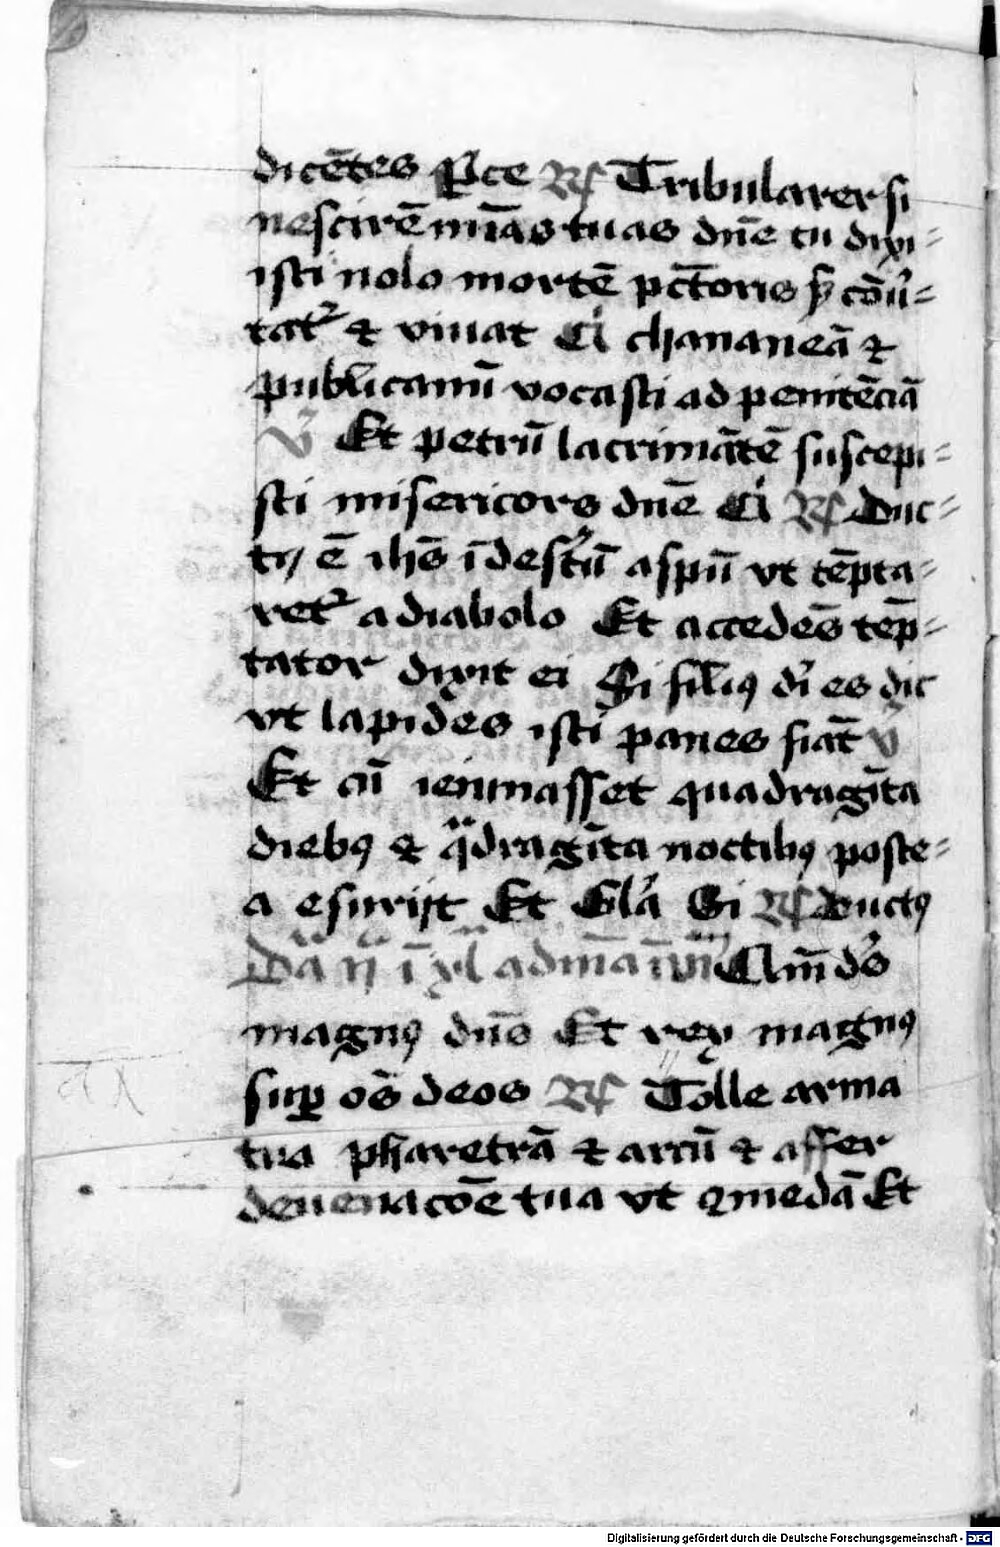 dicētes Pce R Tribularer si
nescirē mīas tuas dnē tu dixi=
isti nolo mortē pctōris sꝫ cōu̾=
tat᷑ ⁊ viuat Ci chananeā ⁊
publicanū vocasti ad penitēciā
V Et petrū lacrimātē suscepi=
sti misericors dnē Ci R Duc=
t9 ē ihs̄ ī desertū a spū vt tēpta=
ret᷑ a diabolo Et accedēs tēp=
tator dixit ei Si fili9 dī es dic
vt lapides isti panes fiāt V
Et cū ieiunasset quadragīta
dieb9 ⁊ qᵃdragīta noctib9 poste=
a esurijt Et Glā Si R Duct9
ī xl ad mā Qm̄ ds̄
magn9 dns̄ Et rex magn9
suꝑ os̄ deos R Tolle arma
tua pharetrā ⁊ arcū ⁊ affer
de venacōe tua vt ꝯmedā Et
Digitalisierung gefördert durch die Deutsche Forschungsgemeinschaft - DFG